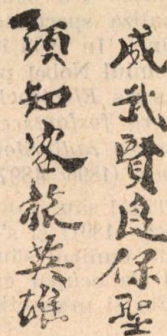 威武賢良保聖
須知客旅英雄